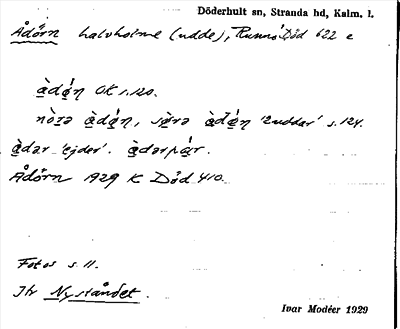 Döderhult sn, Stranda hd, Kalm. l.
Ådörn halvholme (udde), Runnö Död 622 e
àdǿn OK 1.120.
nò̱rə àdǿn, sø̱rə àdǿn 'uddar' s. 124.
àdər 'ejder'. àdərpár.
Ådörn 1929 K Död 410.
Fotos s. 11.
Jfr Nyståndet.
Ivar Modéer 1929